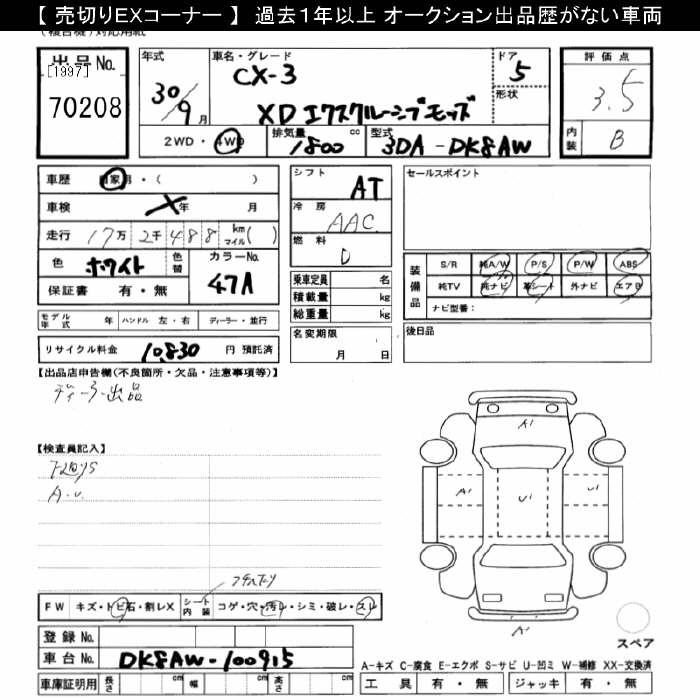 【 売切りEXコーナー 】 過去１年以上 オークション出品歴がない車両
出品 No.
[1997]
70208
年式
30/9月
車名・グレード
CX-3
XD エクスクルーシブモッズ
ドア
5
形状
評価点
3.5
内装
B
2WD・4WD
排気量
1800 cc
型式
3DA-DK8AW
車歴 自家用・( )
車検 X年 月
走行 17万 2千 488 km マイル( )
色 ホワイト 色替
カラーNo. 47A
保証書 有・無
モデル年式 年 ハンドル 左・右 ディーラー・並行
リサイクル料金 10,830 円 預託済
シフト AT
冷房 AAC
燃料 D
乗車定員 名
積載量 kg
総重量 kg
名変期限
月 日
セールスポイント
装備品
S/R 純A/W P/S P/W ABS
純TV 純ナビ 革シート 外ナビ エアB
ナビ型番：
後日品
【出品店申告欄(不良箇所・欠品・注意事項等)】
ディーラー出品
【検査員記入】
A.U.
A1
A1
U1
U1
A1
スペア
FW キズ・トビ石・割レX
シート内装 コゲ・穴・汚レ・シミ・破レ・スレ
登録 No.
車台 No. DK8AW-100915
車庫証明用 長さ cm 幅 cm 高さ cm
A-キズ C-腐食 E-エクボ S-サビ U-凹ミ W-補修 XX-交換済
工具 有・無 ジャッキ 有・無